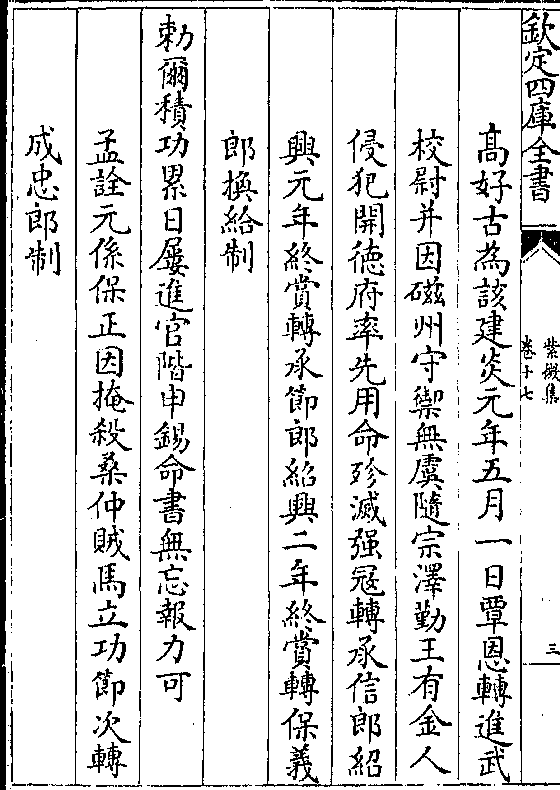 欽定四庫全書
紫微集
卷十七
三
高好古為該建炎元年五月一日覃恩轉進武
校尉并因磁州守禦無虞隨宗澤勤王有金人
侵犯開徳府率先用命殄滅强冦轉承信郎紹
興元年終賞轉承節郎紹興二年終賞轉保義
郎換給制
勅爾積功累日屢進官階申錫命書無忘報力可
孟詮元係保正因掩殺桑仲賊馬立功節次轉
成忠郎制